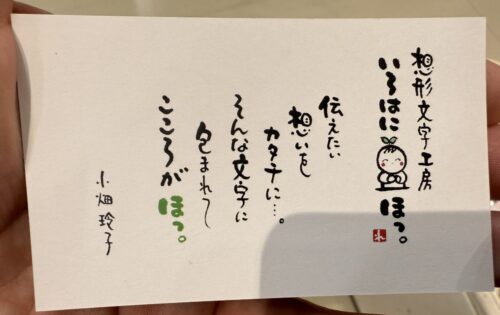 想形文字工房
いろはにほっ。
れ
伝えたい
想いを
カタチに…。
そんな文字に
包まれて
こころがほっ。
小畑玲子